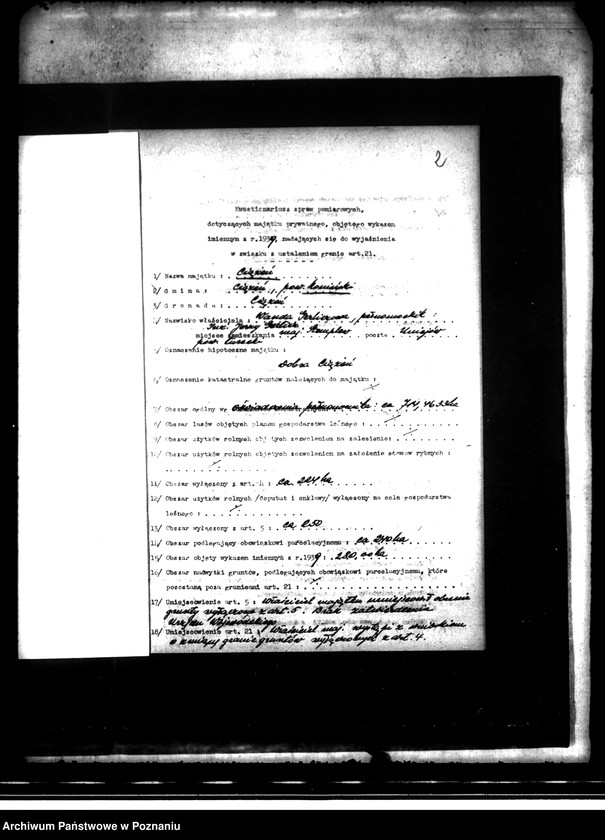 2
Kwestionariusz spraw pomiarowych,
dotyczących majątku prywatnego, objętego wykazem
imiennym z r.1939, nadających się do wyjaśnienia
w związku z ustaleniem granic art.21.
1/ Nazwa majątku : Ciążeń
2/ G m i n a : Ciążeń, pow. Koniński
3/ G r o m a d a : Ciążeń
4/ Nazwisko właściciela : Wanda , pełnomocnik :
Inż. Jerzy
miejsce zamieszkania maj. poczta Uniejów
pow. Turek
5/ Oznaczenie hipoteczne majątku :
Dobra Ciążeń
6/ Oznaczenie katastralne gruntów należących do majątku :
7/ Obszar ogólny wg oświadczenia pełnomocnika : ca 704,4633ha
8/ Obszar lasów objętych planem gospodarstwa leśnego :
9/ Obszar użytków rolnych objętych zezwoleniem na zalesienie:
10/ Obszar użytków rolnych objętych zezwoleniem na założenie stawów rybnych :
11/ Obszar wyłączony z art.4 : ca. 224 ha
12/ Obszar użytków rolnych /deputat i enklawy/ wyłączony na cele gospodarstwa
leśnego :
13/ Obszar wyłączony z art. 5 : ca 250
14/ Obszar podlegający obowiązkowi parcelacyjnemu : ca 240 ha
15/ Obszar objęty wykazem imiennym z r.1939 :
16/ Obszar nadwyżki gruntów, podlegających obowiązkowi parcelacyjnemu, które
pozostaną poza granicami art. 21 :
17/ Umiejscowienie art. 5 : Właściciel majątku umiejscowił obecnie
grunty wyłączone z art. 5. Brak zatwierdzenia
Urzędu Wojewódzkiego
18/ Umiejscowienie art. 21 : Właściciel maj. wystąpi z wnioskiem
o zmianę granic gruntów wyłączonych z art. 4.
Archiwum Państwowe w Poznaniu